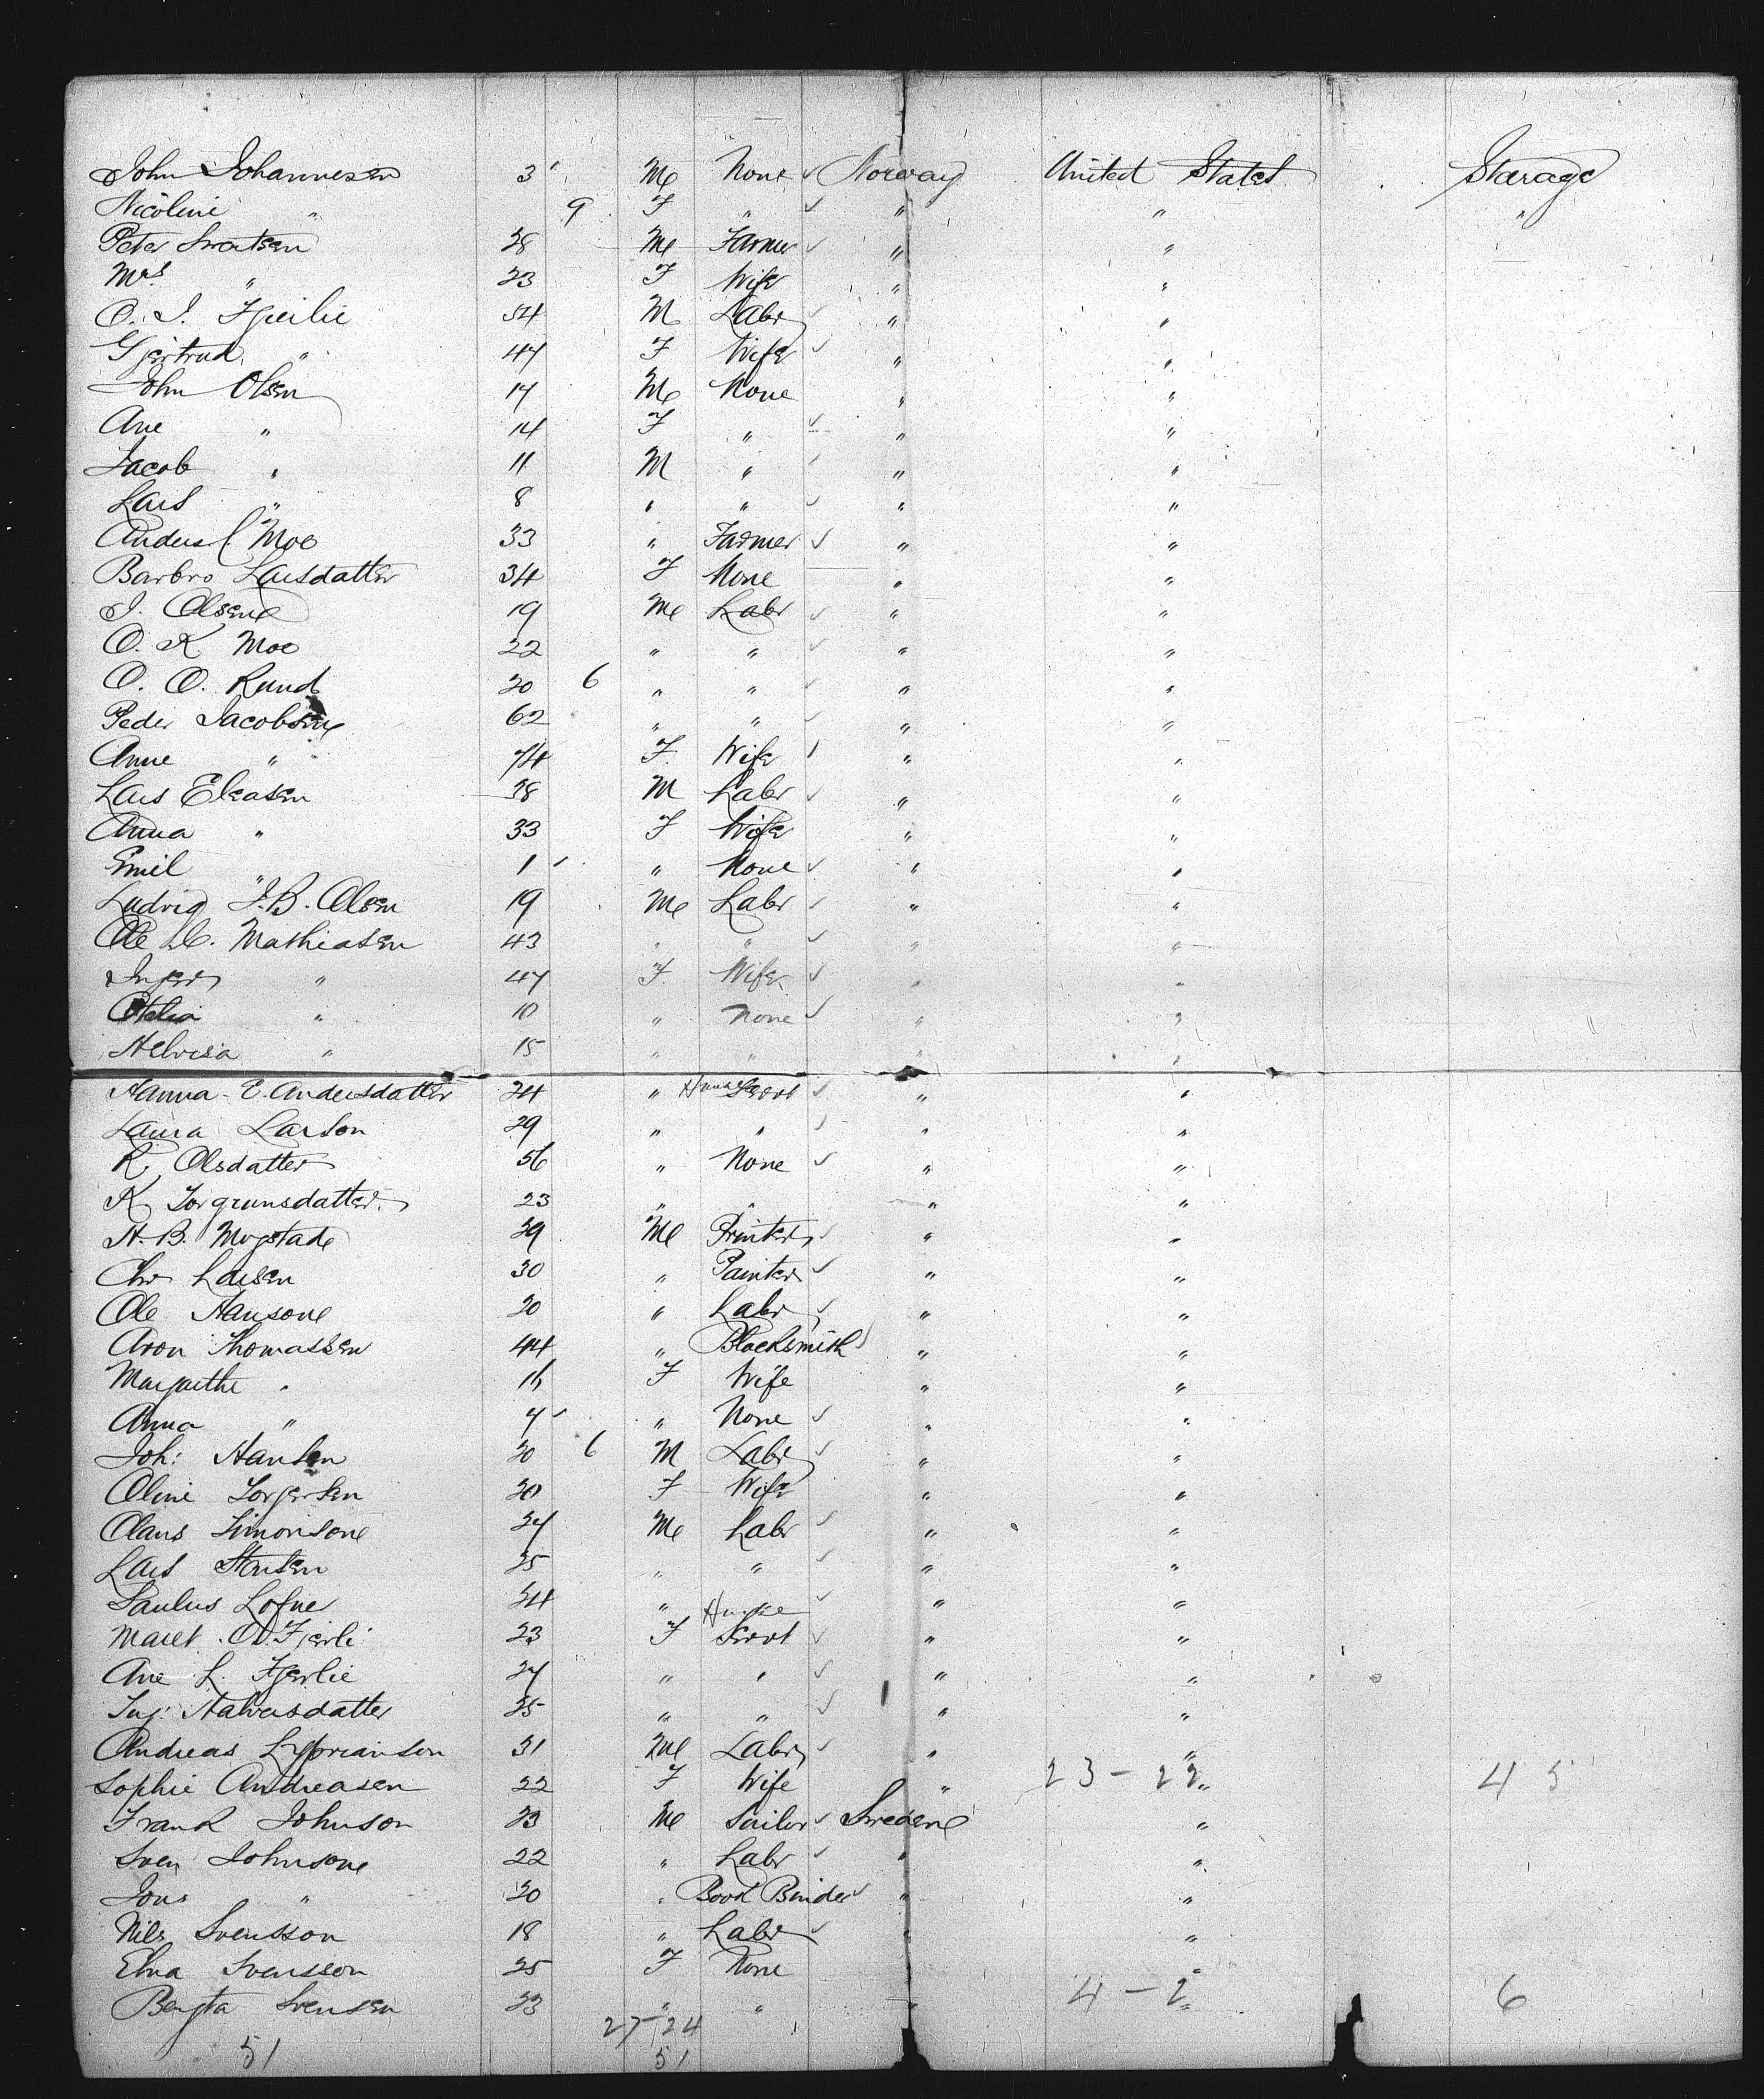 John Johannesen 3 M None ✓ Norway United States Starage
Nicoline " 9 F " ✓ " " "
Peter Sivertsen 28 M Farmer ✓ " "
Mrs. " 23 F Wife " "
O. I. Fjerlie 54 M Labr ✓ " "
Gjertrud " 47 F Wife ✓ " "
John Olsen 17 M None " "
Ane " 14 F " ✓ " "
Jacob " 11 M " ✓ " "
Lars " 8 " " ✓ " "
Anders Moe 33 " Farmer ✓ " "
Barbro Larsdatter 34 F None " "
J. Olsene 19 M Labr ✓ " "
O. K Moe 22 " " ✓ " "
O. O. Rund 20 6 " " ✓ " "
Peder Jacobsene 62 " " ✓ " "
Anne " 74 F. Wife " "
Lars Eleasen 38 M Labr ✓ " "
Anna " 33 F Wife " "
Emil " 1 " None ✓ " "
Ludvig J. B. Olsen 19 M Labr ✓ " "
Ole Mathiasen 43 " " ✓ " "
Inger " 47 F. Wife ✓ " "
Otelia " 10 " None ✓ " "
" 15 " " " "
Hanna E. Andersdatter 24 " House Servt ✓ " "
Laura Larson 29 " " ✓ " "
K. Olsdatter 56 " None ✓ " "
K. Torgrunsdatter 23 " " " "
H. B. Mogstade 29 M Printer ✓ " "
Chr Larsen 30 " Painter ✓ " "
Ole Hansone 20 " Labr ✓ " "
Aron Thomassen 44 " Blacksmith ✓ " "
Margrethe " F Wife " "
Anna " 7 " None ✓ " "
Joh: Hansen 20 6 M Labr ✓ " "
Oline Torgersen 20 F Wife " "
Olaus Simonsone 27 M Labr ✓ " "
Lars Stensen 25 " " ✓ " "
Paulus Lofne 24 " " ✓ " "
Maret O. Fjerli 23 F House Servt ✓ " "
Ane L. Fjerlie 27 " " ✓ " "
Ing: Halversdatter 25 " " ✓ " "
Andreas Zyprianson 31 M Labr ✓ " "
Sophie Andreasen 22 F Wife " 23 - 22 " 45
Frank Johnson 23 M Sailor ✓ Swedene "
Sven Johnsone 22 " Labr ✓ " "
Jons " 20 " Book Binder ✓ " "
Nils Svensson 18 " Labr ✓ " "
Elna Svensson 25 F None "
Bengta Svensen 23 " " " 4 - 2 " 6
27 - 24
51 51